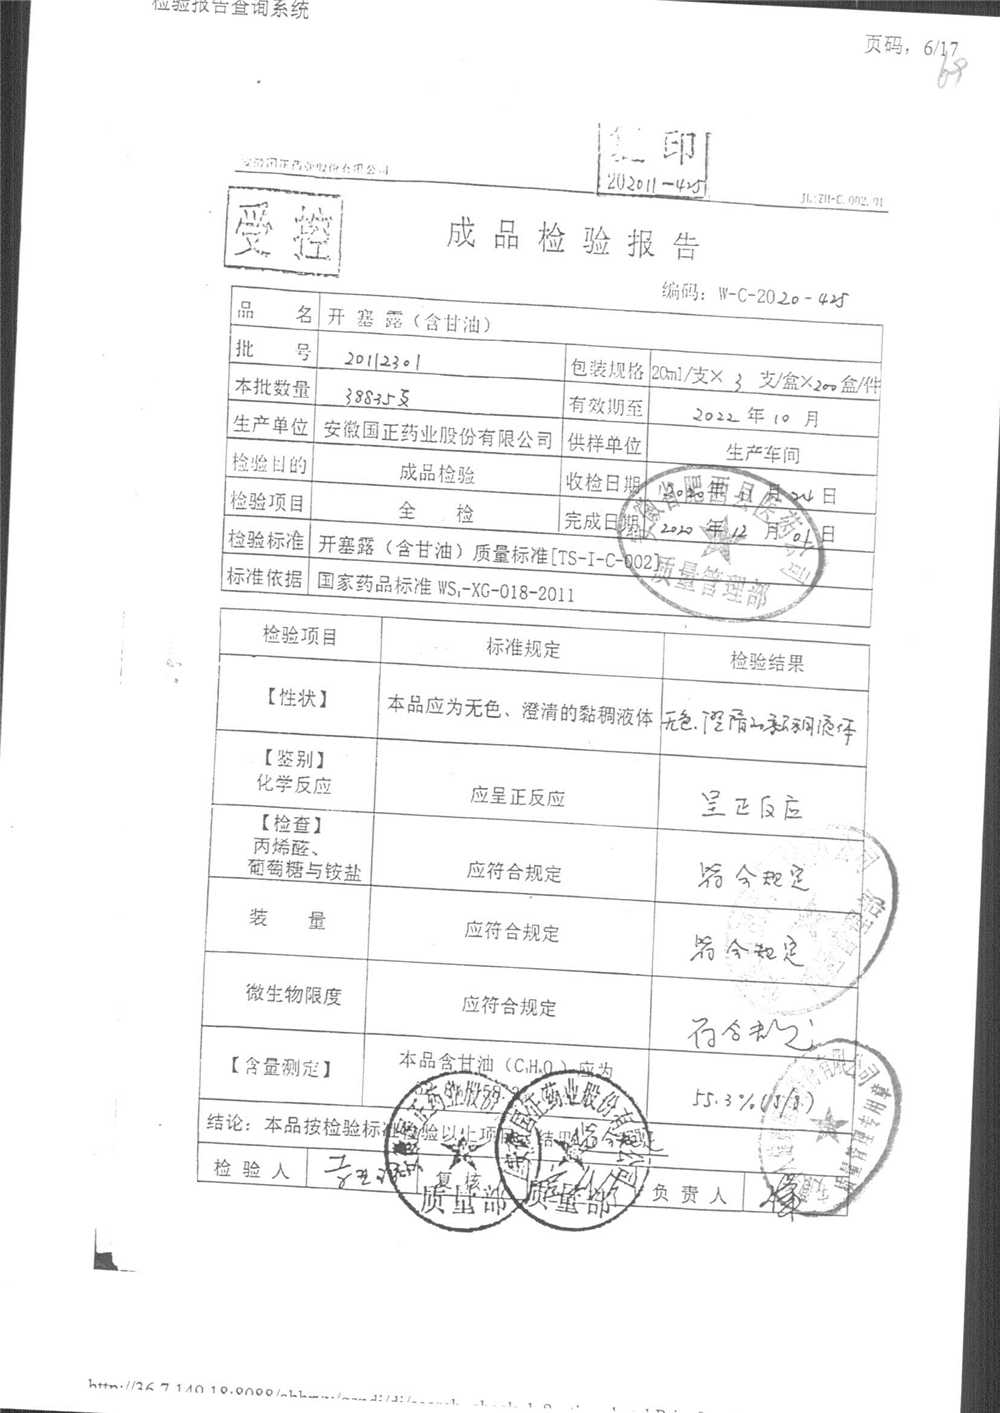 检验报告查询系统
页码，6/17
69
安徽国正药业股份有限公司
复印
202011-425
受控
成品检验报告
编码：W-C-2020-425
品名 开塞露（含甘油）
批号 20112301 包装规格 20ml/支×3支/盒×200盒/件
本批数量 38835支 有效期至 2022年10月
生产单位 安徽国正药业股份有限公司 供样单位 生产车间
检验目的 成品检验 收检日期 2020年11月24日
检验项目 全检 完成日期 2020年12月01日
检验标准 开塞露（含甘油）质量标准[TS-I-C-002]
标准依据 国家药品标准WS₁-XG-018-2011
质量管理部
检验项目 标准规定 检验结果
【性状】 本品应为无色、澄清的黏稠液体 无色、澄清的黏稠液体
【鉴别】
化学反应 应呈正反应 呈正反应
【检查】
丙烯醛、
葡萄糖与铵盐 应符合规定 符合规定
装量 应符合规定 符合规定
微生物限度 应符合规定 符合规定
【含量测定】 本品含甘油（C₃H₈O₃）应为
55.3%(g/g)
结论：本品按检验标准检验以上项目，结果符合规定
检验人 复核 负责人
质量部
质量部